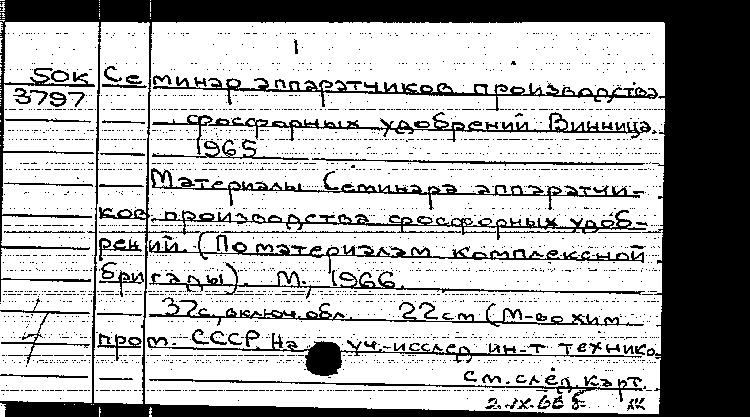 1
50к Семинар аппаратчиков производства
3797
фосфорных удобрений. Винница.
1965
Материалы Семинара аппаратчи-
ков производства фосфорных удоб-
рений. (По материалам комплексной
бригады). М., 1966.
32с., включ. обл. 22см (М-во хим.
пром. СССР. Науч.-исслед. ин-т технико-
см. след. карт.
2.IX.66г.